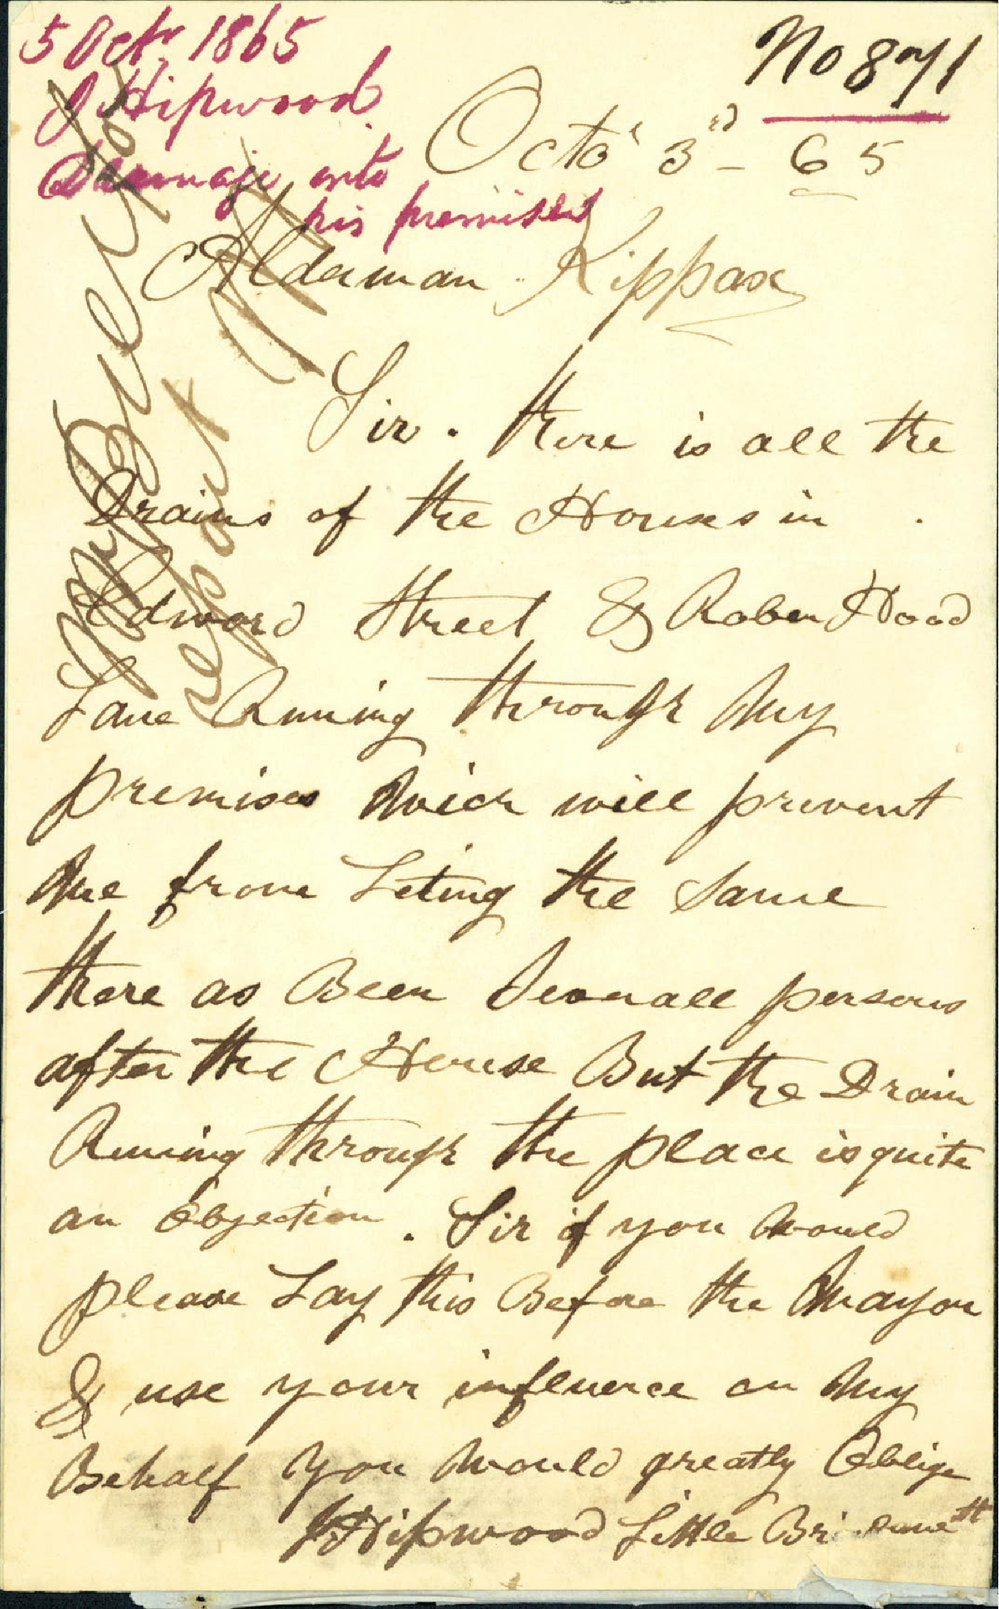 5 Octr. 1865
J Hipwood
Drainage into
his premises
No 871
Octo' 3rd - 65
Alderman Kippax
Mr Bell for
report
Sir. there is all the
Drains of the Houses in
Edward Street & Roben Hood
Lane Runing through My
premises wich will prevent
Me from Leting the Same
there as Been Severall persons
after the House But the Drain
Runing through the place is quite
an Objection. Sir if you Would
please Lay this Before the Mayor
& use your influence on My
Behalf You Would greatly Oblige
J Hipwood Little